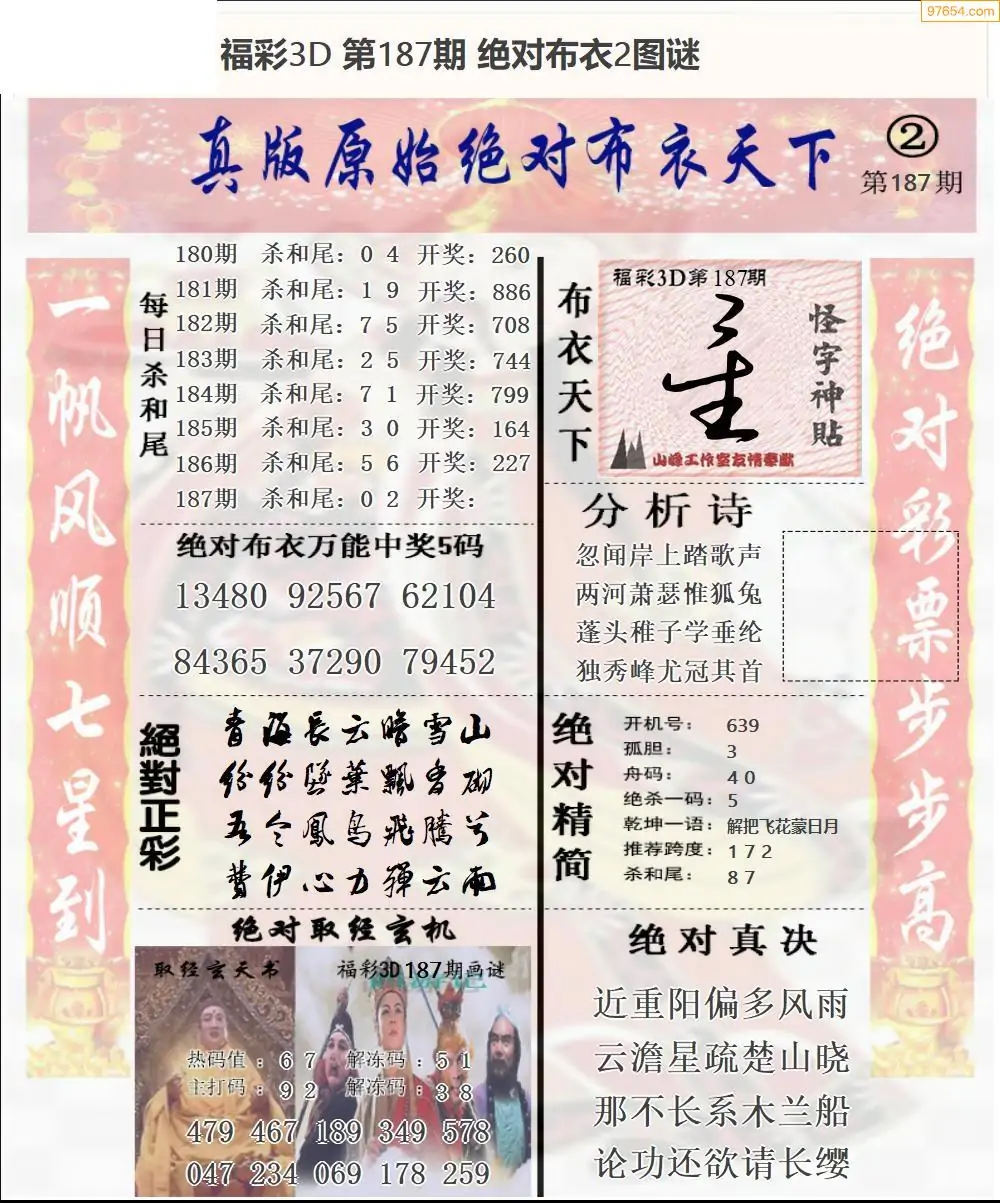 97654.com
福彩3D 第187期 绝对布衣2图谜
真版原始绝对布衣天下
②
第187期
一帆风顺七星到
每日杀和尾
180期 杀和尾：0 4 开奖：260
181期 杀和尾：1 9 开奖：886
182期 杀和尾：7 5 开奖：708
183期 杀和尾：2 5 开奖：744
184期 杀和尾：7 1 开奖：799
185期 杀和尾：3 0 开奖：164
186期 杀和尾：5 6 开奖：227
187期 杀和尾：0 2 开奖：
绝对布衣万能中奖5码
13480 92567 62104
84365 37290 79452
絕對正彩
青海長云暗雪山
纷纷墜葉飄香砌
吾令鳳鸟飛騰兮
費伊心力殫云雨
绝对取经玄机
取经玄天书
福彩3D187期画谜
热码值：6 7 解冻码：5 1
主打码：9 2 解冻码：3 8
479 467 189 349 578
047 234 069 178 259
布衣天下
福彩3D第187期
怪字神貼
山峰工作室友情奉献
分析诗
忽闻岸上踏歌声
两河萧瑟惟狐兔
蓬头稚子学垂纶
独秀峰尤冠其首
绝对精简
开机号：639
孤胆：3
舟码：4 0
绝杀一码：5
乾坤一语：解把飞花蒙日月
推荐跨度：1 7 2
杀和尾：8 7
绝对真决
近重阳偏多风雨
云澹星疏楚山晓
那不长系木兰船
论功还欲请长缨
绝对彩票步步高